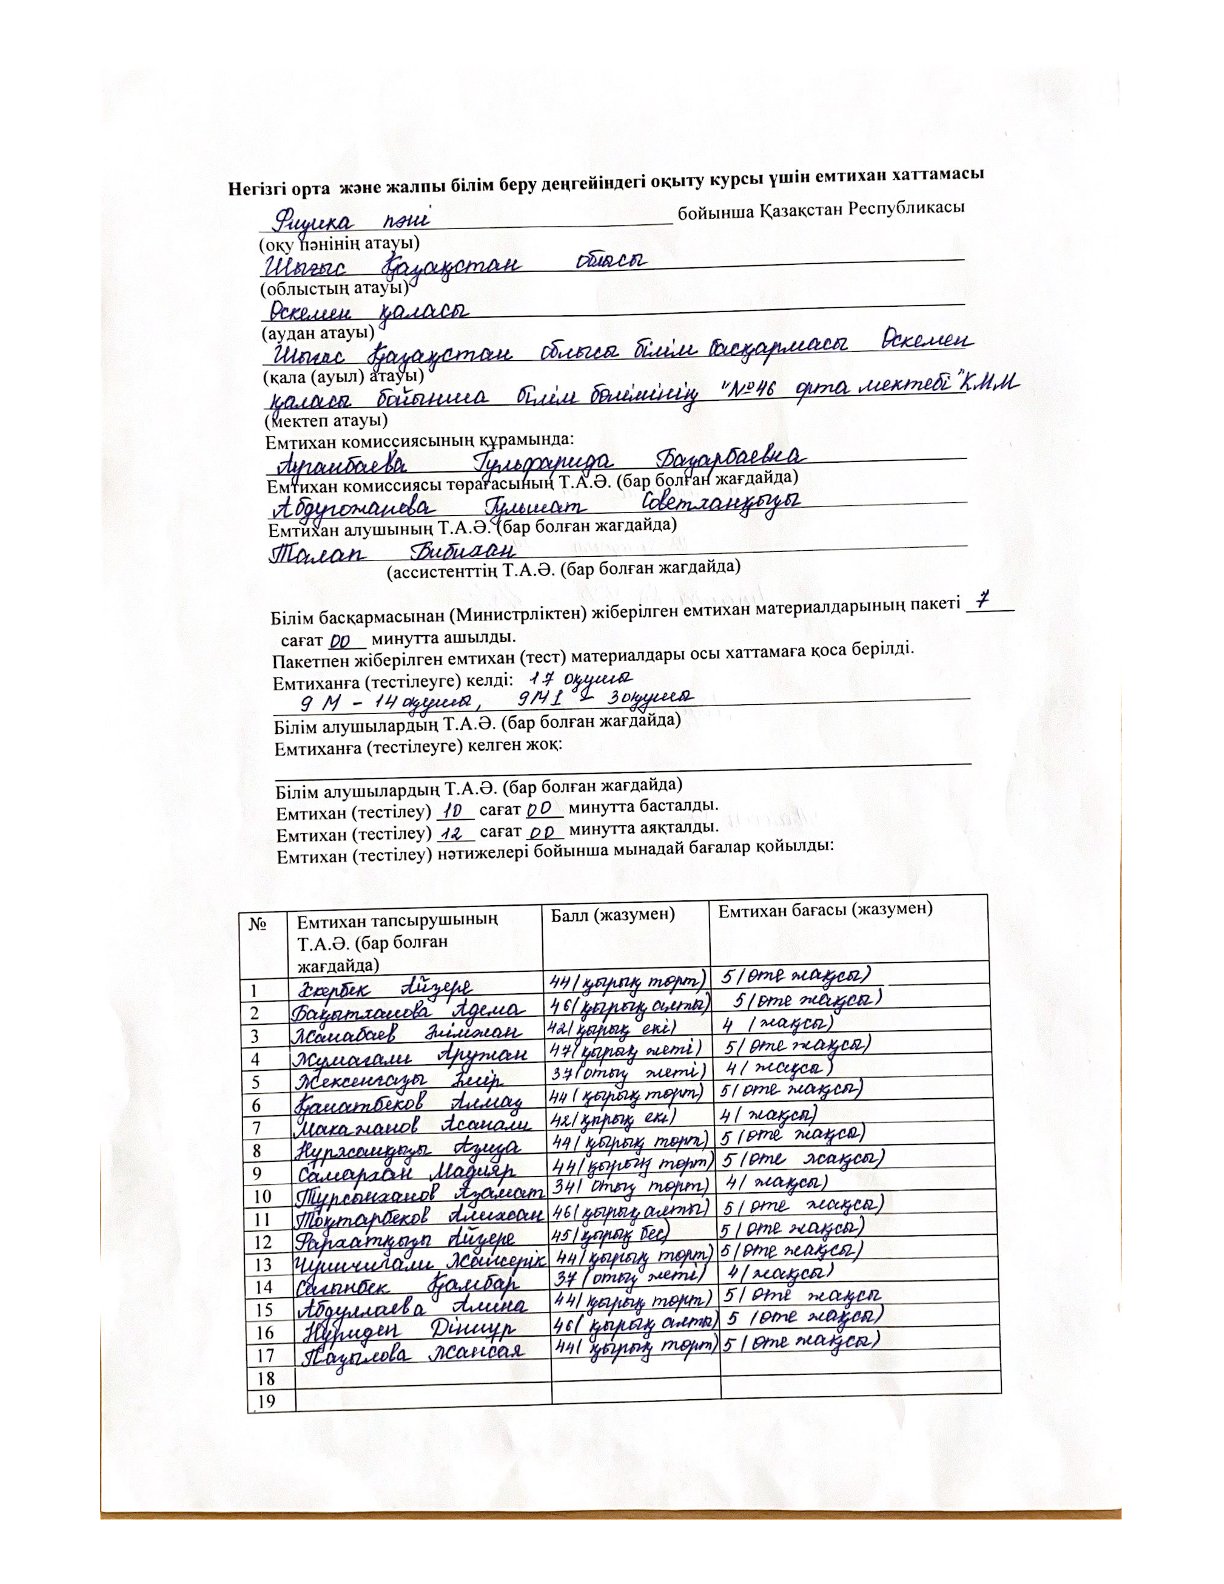 Негізгі орта және жалпы білім беру деңгейіндегі оқыту курсы үшін емтихан хаттамасы
Физика пәні бойынша Қазақстан Республикасы
(оқу пәнінің атауы)
Шығыс Қазақстан облысы
(облыстың атауы)
Өскемен қаласы
(аудан атауы)
Шығыс Қазақстан облысы білім басқармасы Өскемен
(қала (ауыл) атауы)
қаласы бойынша білім бөлімінің "№46 орта мектебі" КММ
(мектеп атауы)
Емтихан комиссиясының құрамында:
Гульфарида Базарбаевна
Емтихан комиссиясы төрағасының Т.А.Ә. (бар болған жағдайда)
Абдугожанева Гульшат Советханқызы
Емтихан алушының Т.А.Ә. (бар болған жағдайда)
Талап Бибихан
(ассистенттің Т.А.Ә. (бар болған жағдайда)
Білім басқармасынан (Министрліктен) жіберілген емтихан материалдарының пакеті 7
сағат 00 минутта ашылды.
Пакетпен жіберілген емтихан (тест) материалдары осы хаттамаға қоса берілді.
Емтиханға (тестілеуге) келді: 17 оқушы
9 М - 14 оқушы, 9МІ - 3 оқушы
Білім алушылардың Т.А.Ә. (бар болған жағдайда)
Емтиханға (тестілеуге) келген жоқ:
Білім алушылардың Т.А.Ә. (бар болған жағдайда)
Емтихан (тестілеу) 10 сағат 00 минутта басталды.
Емтихан (тестілеу) 12 сағат 00 минутта аяқталды.
Емтихан (тестілеу) нәтижелері бойынша мынадай бағалар қойылды:
№ Емтихан тапсырушының Балл (жазумен) Емтихан бағасы (жазумен)
Т.А.Ә. (бар болған
жағдайда)
1 Айзере 44 (қырық төрт) 5 (өте жақсы)
2 Бақытханова Адема 46 (қырық алты) 5 (өте жақсы)
3 Жанабаев Әлімжан 42 (қырық екі) 4 (жақсы)
4 Жұмағали Аружан 47 (қырық жеті) 5 (өте жақсы)
5 Жексенғазы Әмір 37 (отыз жеті) 4 (жақсы)
6 Қанатбеков Алмаз 44 (қырық төрт) 5 (өте жақсы)
7 Макажанов Асанали 42 (қырық екі) 4 (жақсы)
8 Нұржанқызы Азиза 44 (қырық төрт) 5 (өте жақсы)
9 Самархан Мадияр 44 (қырық төрт) 5 (өте жақсы)
10 Тұрсынханов Азамат 34 (отыз төрт) 4 (жақсы)
11 Тоқтарбеков Алихан 46 (қырық алты) 5 (өте жақсы)
12 Фархатқызы Айзере 45 (қырық бес) 5 (өте жақсы)
13 Жансерік 44 (қырық төрт) 5 (өте жақсы)
14 Сағынбек Қамбар 37 (отыз жеті) 4 (жақсы)
15 Абдуллаева Амина 44 (қырық төрт) 5 (өте жақсы
16 46 (қырық алты) 5 (өте жақсы)
17 Пазылова Жансая 44 (қырық төрт) 5 (өте жақсы)
18
19